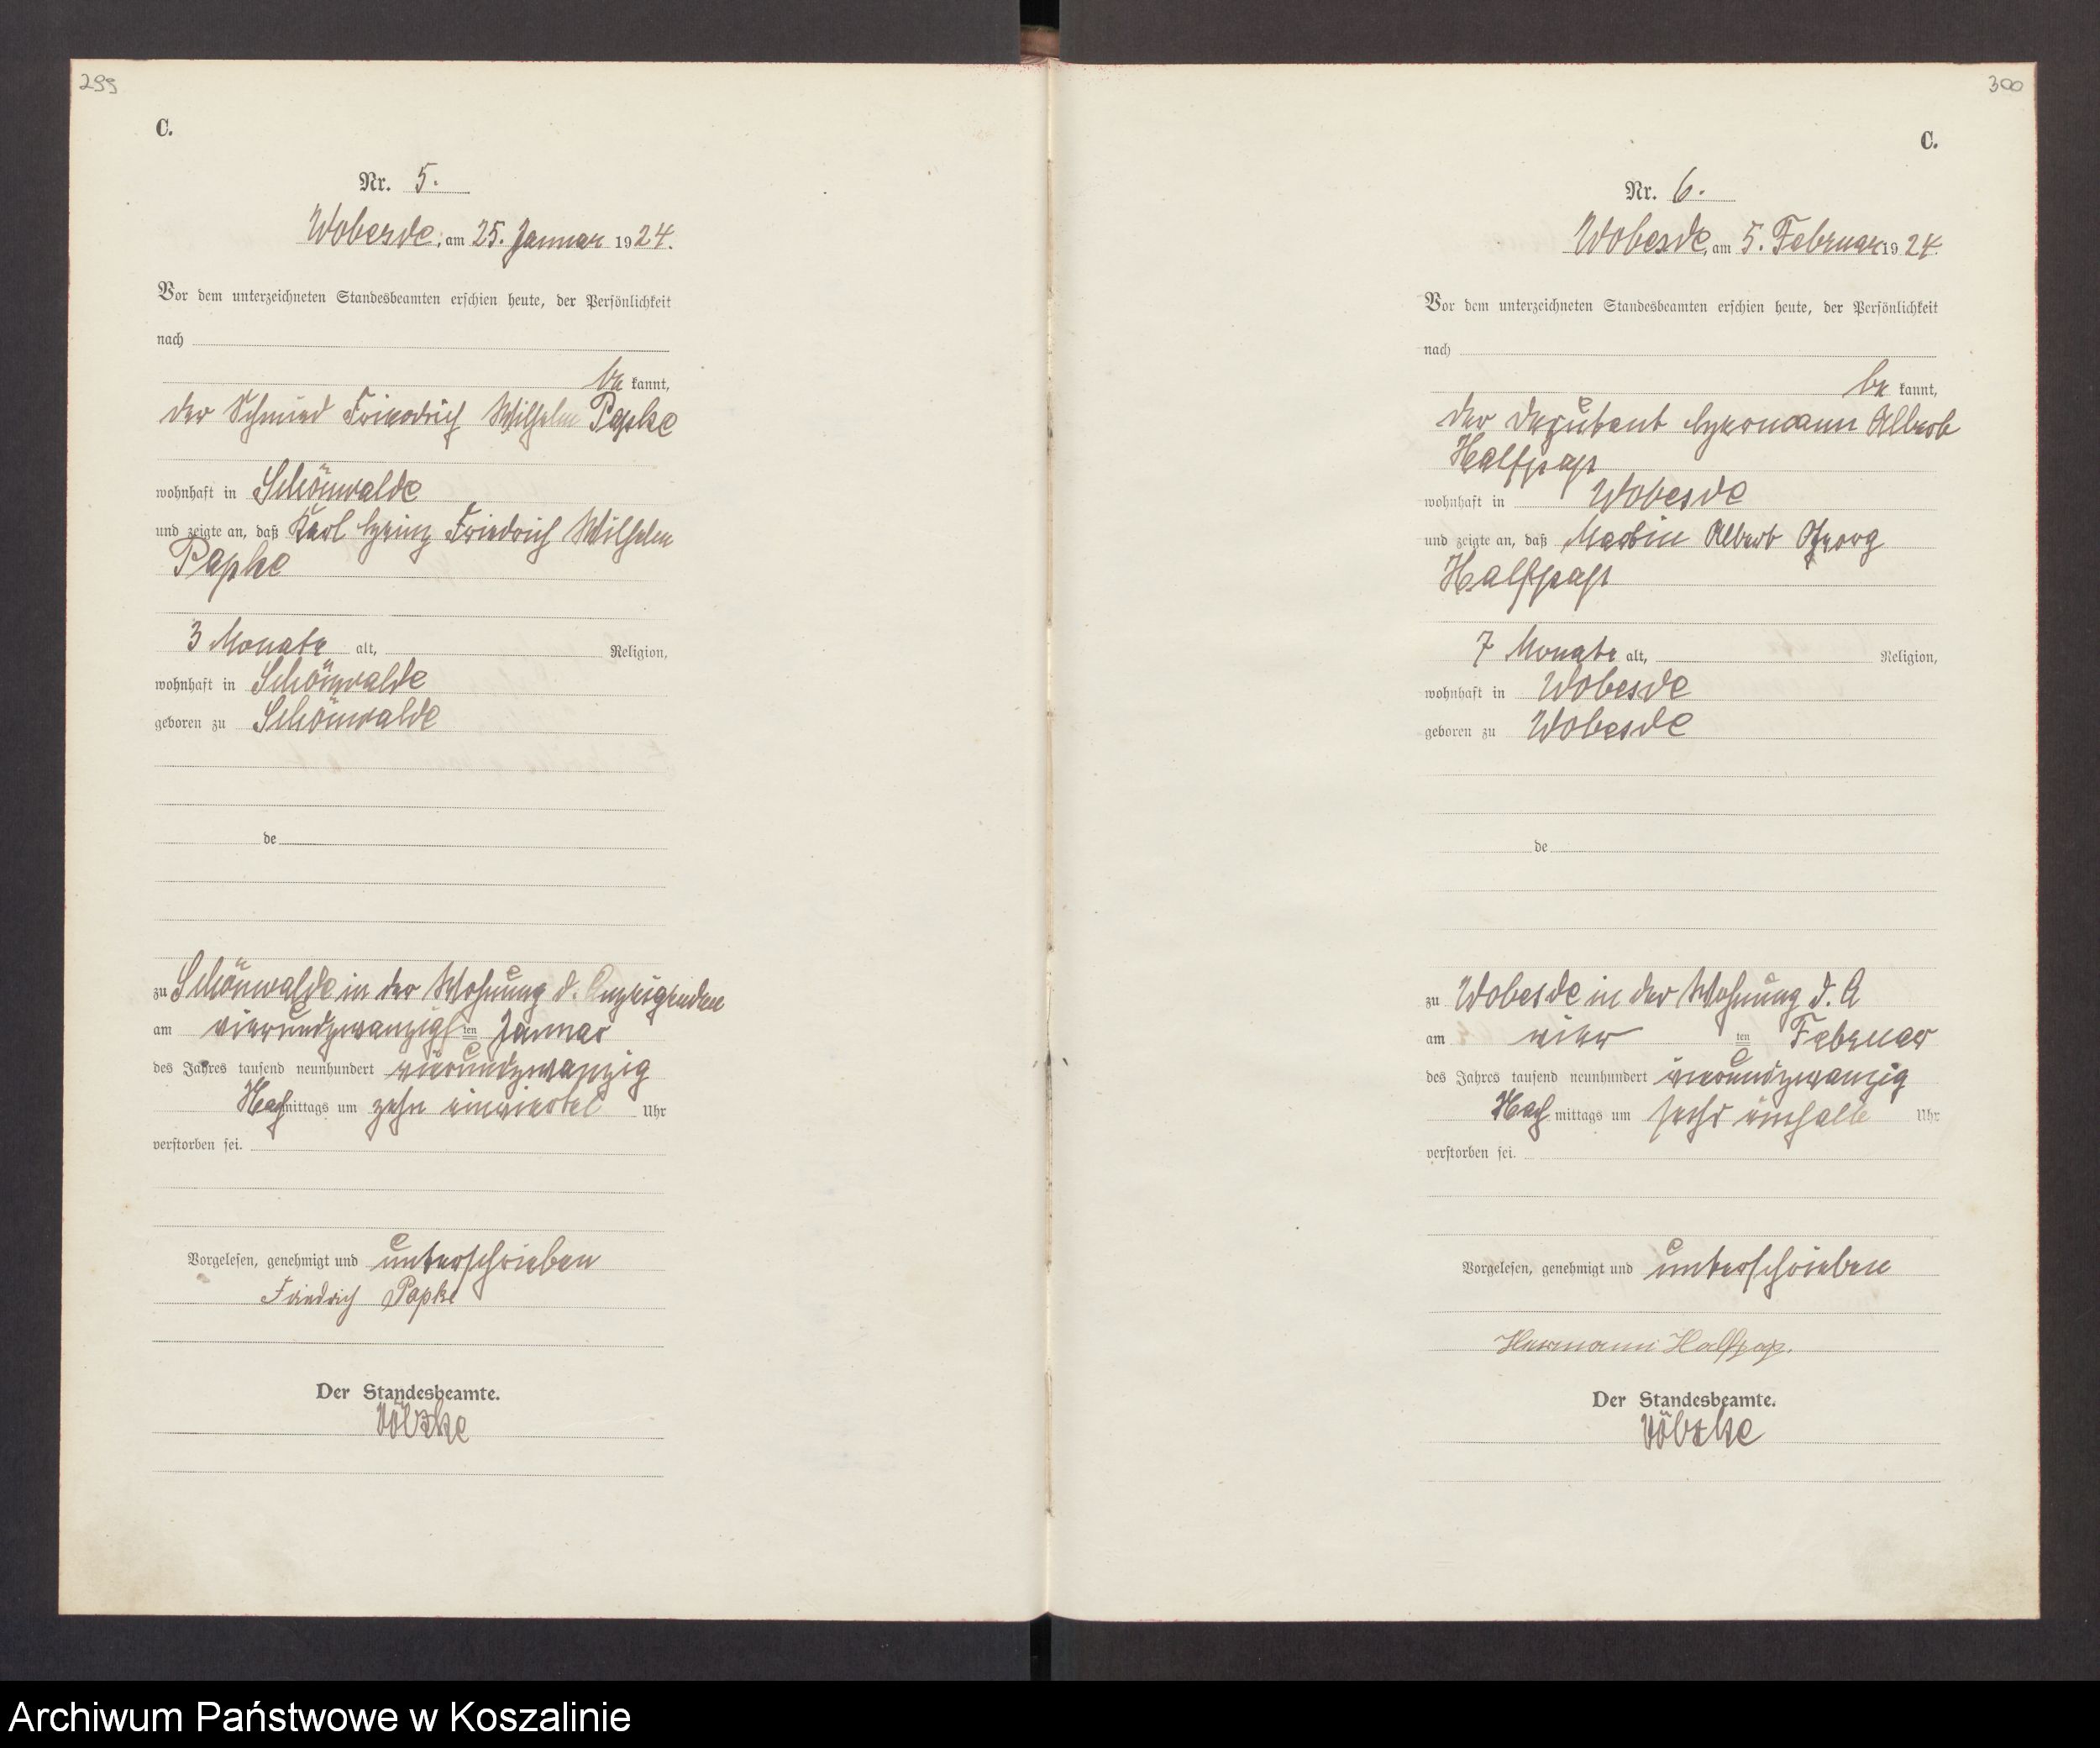 299
C.
Nr. 5.
Wobesde, am 25. Januar 1924.
Vor dem unterzeichneten Standesbeamten erschien heute, der Persönlichkeit
nach
be kannt,
der Schmied Friedrich Wilhelm Papke
wohnhaft in Schönwalde
und zeigte an, daß Karl Heinz Friedrich Wilhelm
Papke
3 Monate alt, Religion,
wohnhaft in Schönwalde
geboren zu Schönwalde
de
zu Schönwalde in der Wohnung d. Anzeigenden
am vierundzwanzigsten Januar
des Jahres tausend neunhundert vierundzwanzig
Nachmittags um zehn einviertel Uhr
verstorben sei.
Vorgelesen, genehmigt und unterschrieben
Friedrich Papke
Der Standesbeamte.
300
C.
Nr. 6.
Wobesde, am 5. Februar 1924.
Vor dem unterzeichneten Standesbeamten erschien heute, der Persönlichkeit
nach
be kannt,
der Deputant Hermann Albert
Halfpap
wohnhaft in Wobesde
und zeigte an, daß Martin Albert Georg
Halfpap
7 Monate alt, Religion,
wohnhaft in Wobesde
geboren zu Wobesde
de
zu Wobesde in der Wohnung d. A
am vier ten Februar
des Jahres tausend neunhundert vierundzwanzig
Nach mittags um sechs einhalb Uhr
verstorben sei.
Vorgelesen, genehmigt und unterschrieben
Hermann Halfpap.
Der Standesbeamte.
Archiwum Państwowe w Koszalinie